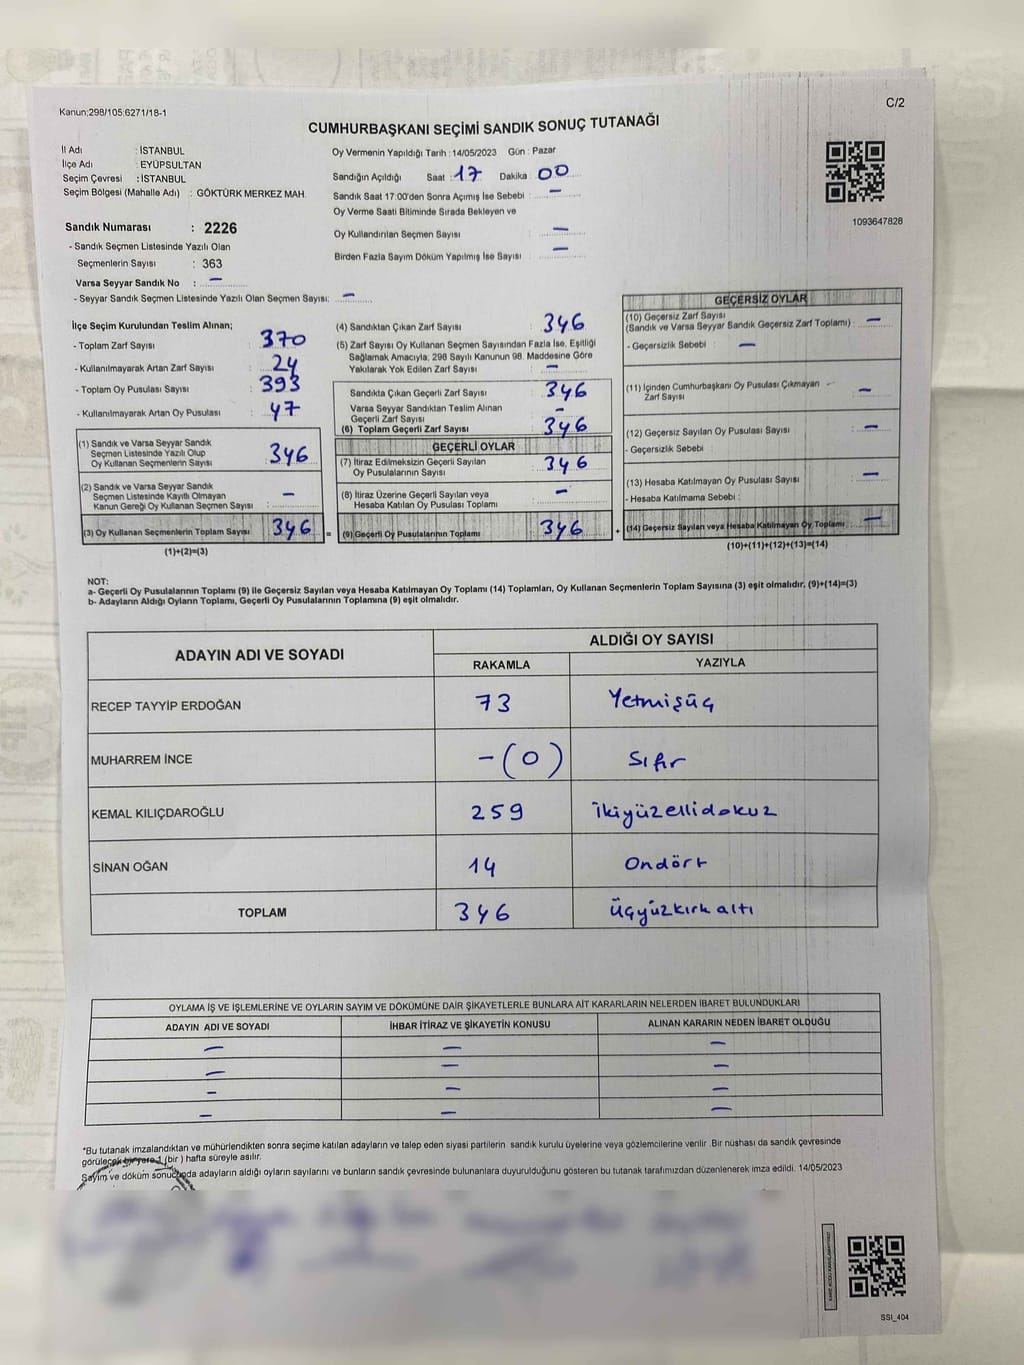 Kanun;298/105;6271/18-1
C/2
CUMHURBAŞKANI SEÇİMİ SANDIK SONUÇ TUTANAĞI
İl Adı : İSTANBUL
İlçe Adı : EYÜPSULTAN
Seçim Çevresi : İSTANBUL
Seçim Bölgesi (Mahalle Adı) : GÖKTÜRK MERKEZ MAH.
Sandık Numarası : 2226
- Sandık Seçmen Listesinde Yazılı Olan
Seçmenlerin Sayısı : 363
Varsa Seyyar Sandık No : -
- Seyyar Sandık Seçmen Listesinde Yazılı Olan Seçmen Sayısı: -
Oy Vermenin Yapıldığı Tarih : 14/05/2023 Gün : Pazar
Sandığın Açıldığı Saat : 17 Dakika : 00
Sandık Saat 17:00'den Sonra Açımış İse Sebebi : -
Oy Verme Saati Bitiminde Sırada Bekleyen ve
Oy Kullandırılan Seçmen Sayısı -
Birden Fazla Sayım Döküm Yapılmış İse Sayısı -
1093647828
İlçe Seçim Kurulundan Teslim Alınan;
- Toplam Zarf Sayısı : 370
- Kullanılmayarak Artan Zarf Sayısı : 24
- Toplam Oy Pusulası Sayısı : 393
- Kullanılmayarak Artan Oy Pusulası : 47
(1) Sandık ve Varsa Seyyar Sandık
Seçmen Listesinde Yazılı Olup
Oy Kullanan Seçmenlerin Sayısı : 346
(2) Sandık ve Varsa Seyyar Sandık
Seçmen Listesinde Kayıtlı Olmayan
Kanun Gereği Oy Kullanan Seçmen Sayısı : -
(3) Oy Kullanan Seçmenlerin Toplam Sayısı : 346 =
(1)+(2)=(3)
(4) Sandıktan Çıkan Zarf Sayısı : 346
(5) Zarf Sayısı Oy Kullanan Seçmen Sayısından Fazla İse, Eşitliği
Sağlamak Amacıyla; 298 Sayılı Kanunun 98. Maddesine Göre
Yakılarak Yok Edilen Zarf Sayısı : -
Sandıkta Çıkan Geçerli Zarf Sayısı : 346
Varsa Seyyar Sandıktan Teslim Alınan
Geçerli Zarf Sayısı : -
(6) Toplam Geçerli Zarf Sayısı : 346
GEÇERLİ OYLAR
(7) İtiraz Edilmeksizin Geçerli Sayılan
Oy Pusulalarının Sayısı : 346
(8) İtiraz Üzerine Geçerli Sayılan veya
Hesaba Katılan Oy Pusulası Toplamı : -
(9) Geçerli Oy Pusulalarının Toplamı : 346 +
GEÇERSİZ OYLAR
(10) Geçersiz Zarf Sayısı
(Sandık ve Varsa Seyyar Sandık Geçersiz Zarf Toplamı) : -
- Geçersizlik Sebebi : -
(11) İçinden Cumhurbaşkanı Oy Pusulası Çıkmayan
Zarf Sayısı : -
(12) Geçersiz Sayılan Oy Pusulası Sayısı : -
- Geçersizlik Sebebi :
(13) Hesaba Katılmayan Oy Pusulası Sayısı : -
- Hesaba Katılmama Sebebi :
(14) Geçersiz Sayılan veya Hesaba Katılmayan Oy Toplamı : -
(10)+(11)+(12)+(13)=(14)
NOT:
a- Geçerli Oy Pusulalarının Toplamı (9) ile Geçersiz Sayılan veya Hesaba Katılmayan Oy Toplamı (14) Toplamları, Oy Kullanan Seçmenlerin Toplam Sayısına (3) eşit olmalıdır. (9)+(14)=(3)
b- Adayların Aldığı Oyların Toplamı, Geçerli Oy Pusulalarının Toplamına (9) eşit olmalıdır.
ADAYIN ADI VE SOYADI
ALDIĞI OY SAYISI
RAKAMLA YAZIYLA
RECEP TAYYİP ERDOĞAN 73 Yetmişüç
MUHARREM İNCE -(0) Sıfır
KEMAL KILIÇDAROĞLU 259 İkiyüzellidokuz
SİNAN OĞAN 14 Ondört
TOPLAM 346 Üçyüzkırkaltı
OYLAMA İŞ VE İŞLEMLERİNE VE OYLARIN SAYIM VE DÖKÜMÜNE DAİR ŞİKAYETLERLE BUNLARA AİT KARARLARIN NELERDEN İBARET BULUNDUKLARI
ADAYIN ADI VE SOYADI İHBAR İTİRAZ VE ŞİKAYETİN KONUSU ALINAN KARARIN NEDEN İBARET OLDUĞU
- - -
- - -
- - -
- - -
*Bu tutanak imzalandıktan ve mühürlendikten sonra seçime katılan adayların ve talep eden siyasi partilerin sandık kurulu üyelerine veya gözlemcilerine verilir .Bir nüshası da sandık çevresinde
görülecek bir yere 1 (bir ) hafta süreyle asılır.
Sayım ve döküm sonucunda adayların aldığı oyların sayılarını ve bunların sandık çevresinde bulunanlara duyurulduğunu gösteren bu tutanak tarafımızdan düzenlenerek imza edildi. 14/05/2023
SSI_404